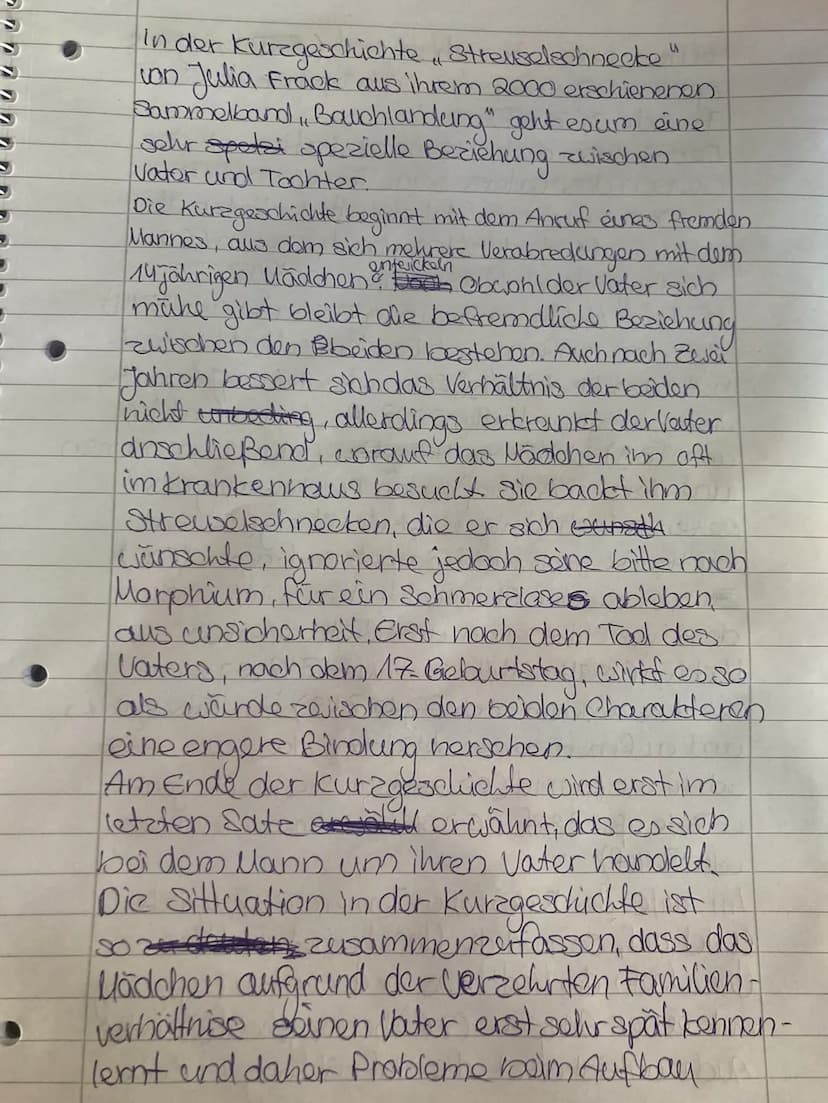 In der Kurzgeschichte „Streuselschnecke"
von Julia Frack aus ihrem 2000 erschienenen
Sammelband „Bauchlandung" geht es um eine
sehr spetzi spezielle Beziehung zwischen
Vater und Tochter.
Die Kurzgeschichte beginnt mit dem Anruf eines fremden
Mannes, aus dem sich mehrere Verabredungen mit dem
14 jährigen Mädchen entwickeln. Obwohl der Vater sich
mühe gibt bleibt die befremdliche Beziehung
zwischen den beiden bestehen. Auch nach zwei
Jahren bessert sich das Verhältnis der beiden
nicht unbeding, allerdings erkrankt der Vater
anschließend, worauf das Mädchen ihn oft
im Krankenhaus besucht. Sie backt ihm
Streuselschnecken, die er sich wünsch
wünschte, ignorierte jedoch seine bitte nach
Morphium, für ein Schmerzloses ableben,
aus unsicherheit. Erst nach dem Tod des
Vaters, nach dem 17. Geburtstag, wirkt es so
als würde zwischen den beiden Charakteren
eine engere Bindung herschen.
Am Ende der Kurzgeschichte wird erst im
letzten Satz erwähnt, das es sich
bei dem Mann um ihren Vater handelt.
Die Sittuation in der Kurzgeschichte ist
so zu deuten zusammenzufassen, dass das
Mädchen aufgrund der verzehrten Familien-
verhältnise seinen Vater erst sehr spät kennen-
lernt und daher Probleme beim Aufbau